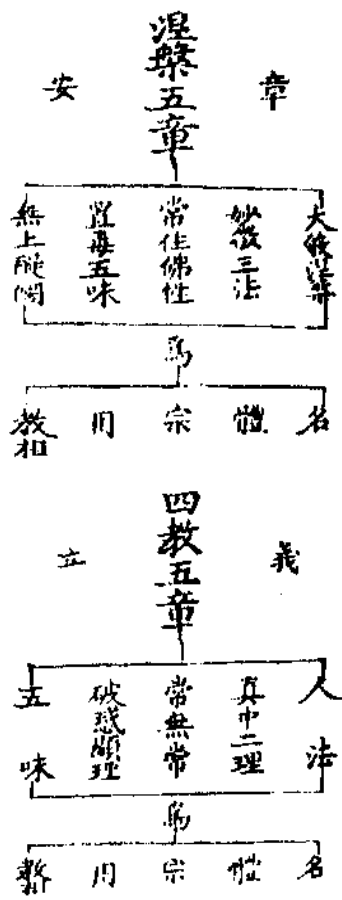 章
涅槃五章
安
大般涅槃
妙微三法
常住佛性
置毒五味
無上醍醐
為
名
體
宗
用
教相
義
四教五章
立
人法
真中二理
常無常
破惑顯理
五味
為
名
體
宗
用